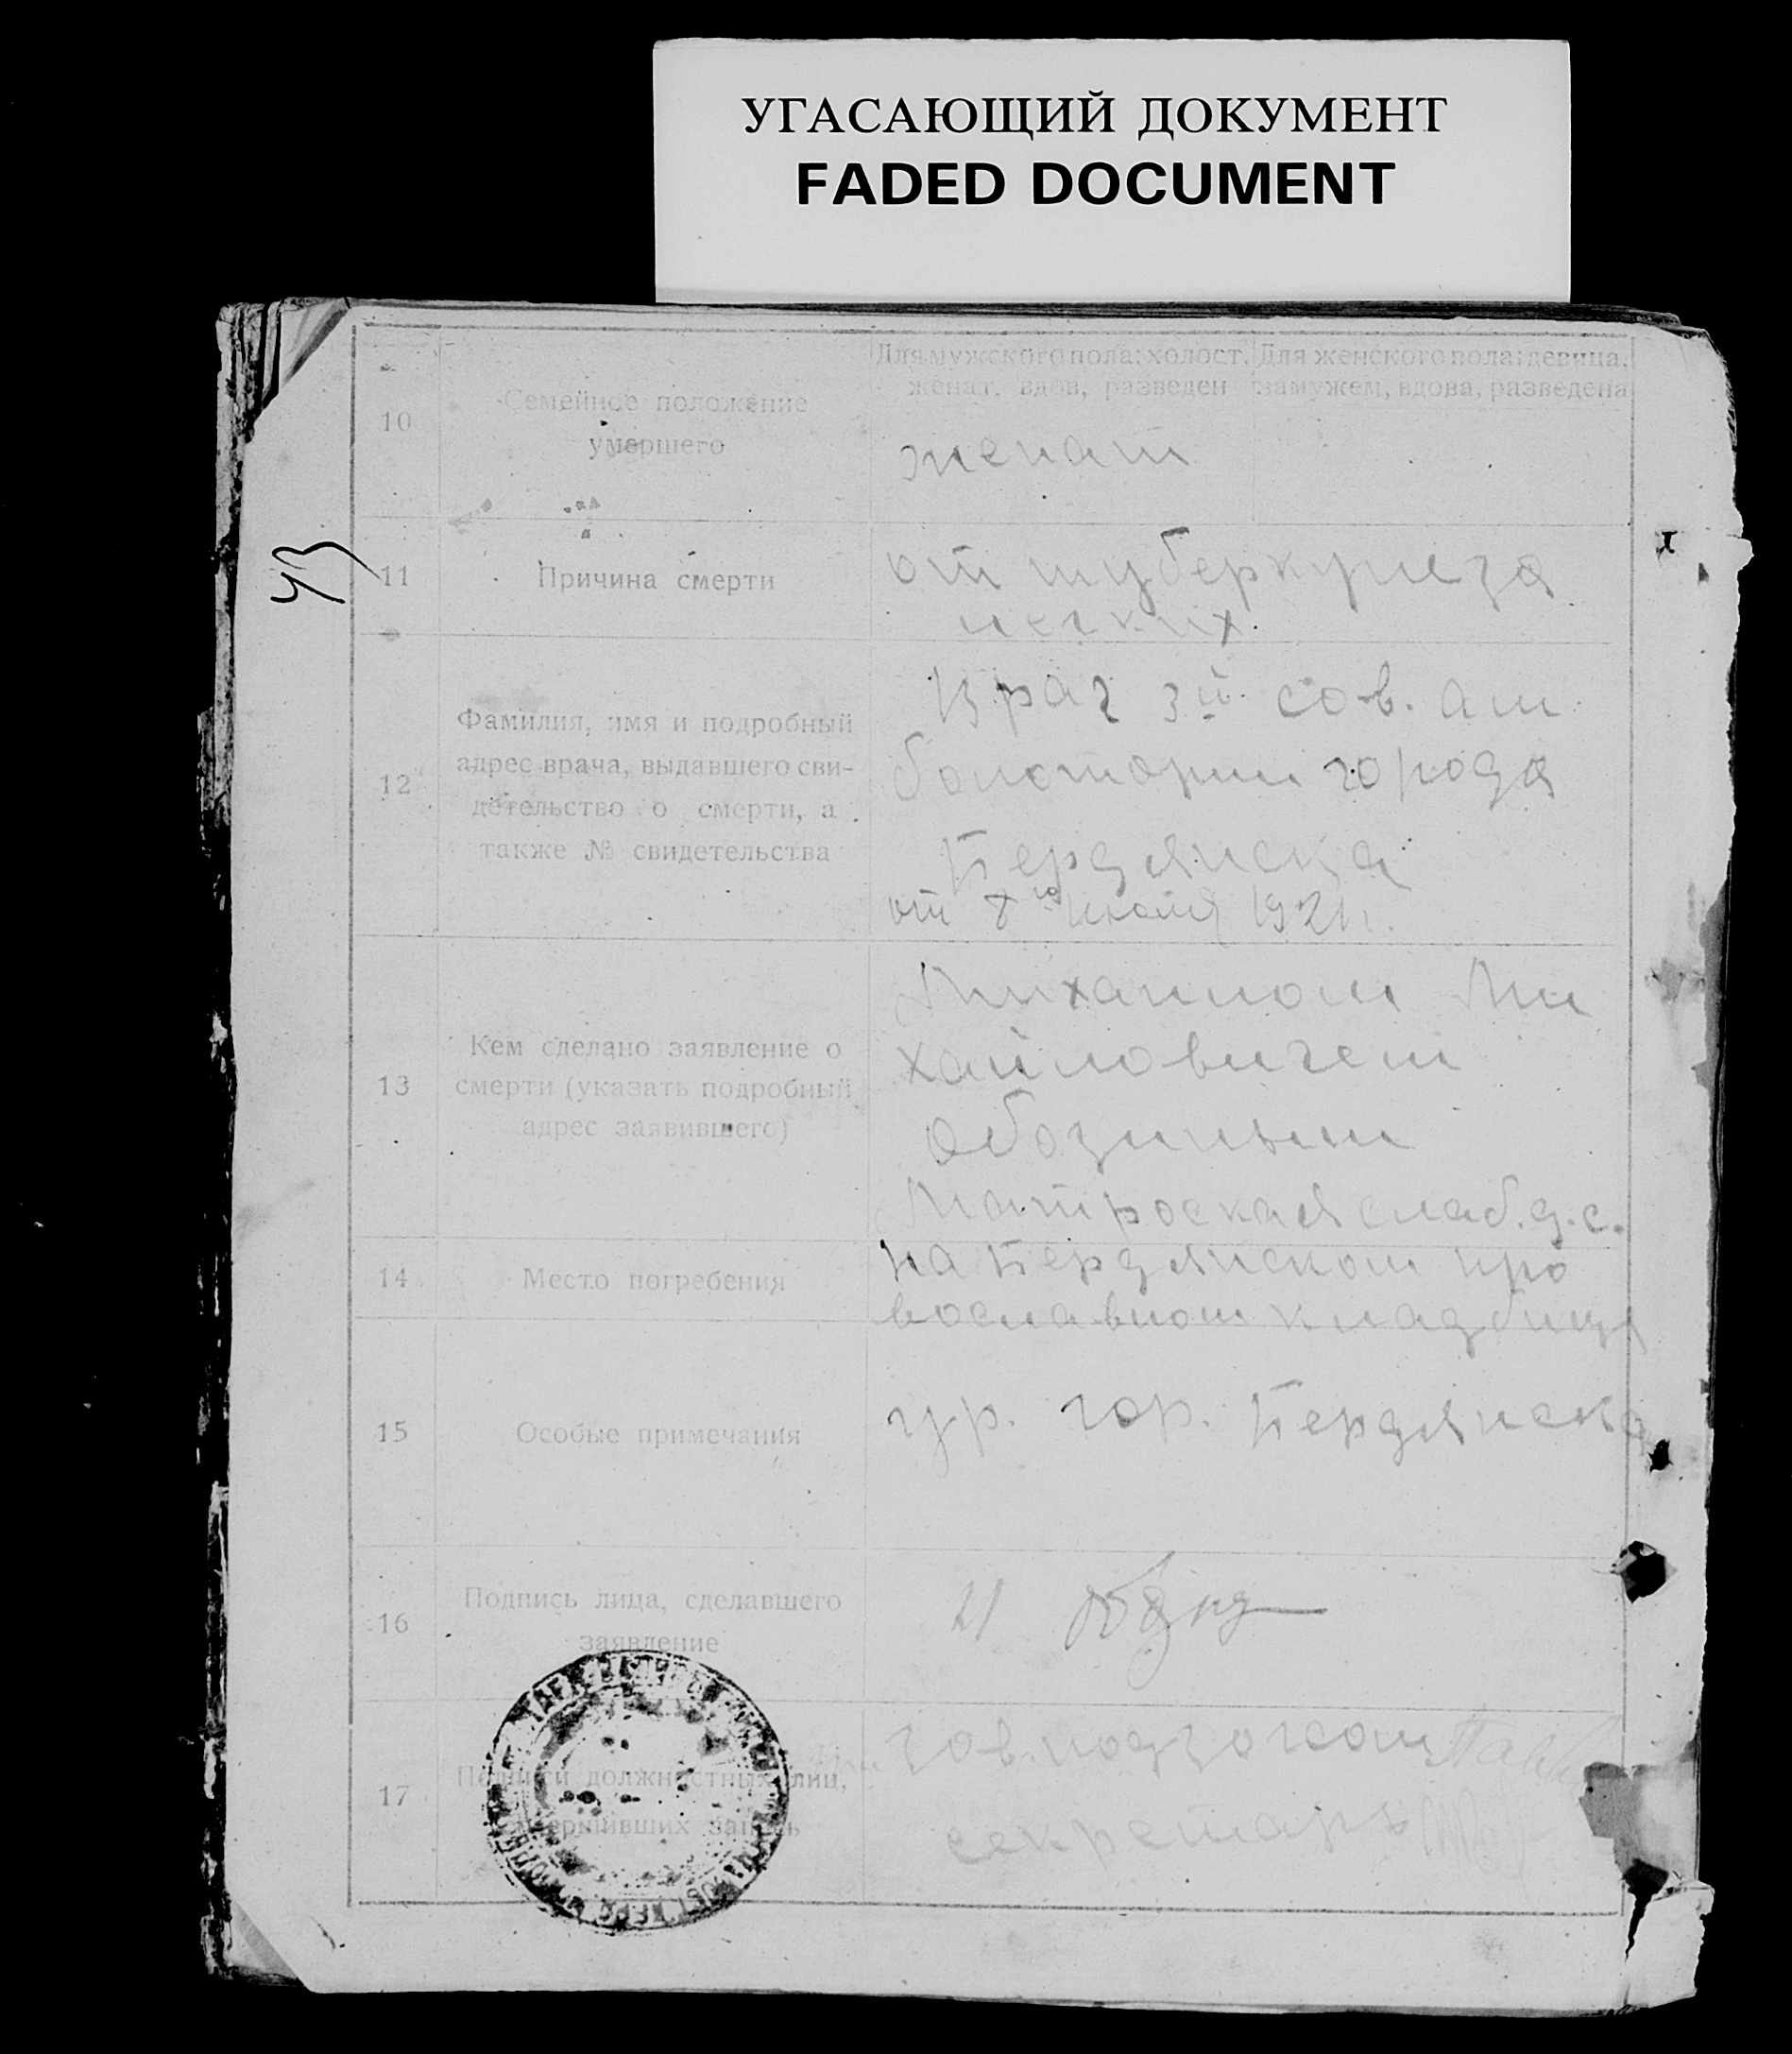 УГАСАЮЩИЙ ДОКУМЕНТ
FADED DOCUMENT
43
10
Семейное положение
умершего
Для мужского пола: холост,
женат, вдов, разведен
Для женского пола: девица,
замужем, вдова, разведена
женат
11
Причина смерти
от туберкулеза
легких.
12
Фамилия, имя и подробный
адрес врача, выдавшего сви-
детельство о смерти, а
также № свидетельства
Врач 3й сов. ам
болотории города
Бердянска
от 8го июля 1921г.
13
Кем сделано заявление о
смерти (указать подробный
адрес заявившего)
Михаилом Ми
хайловичем
Обозиным
Матроская слаб. д. с.
14
Место погребения
на Бердянском пра
вославном кладбище
15
Особые примечания
гр. гор. Бердянска
16
Подпись лица, сделавшего
заявление
17
Подписи должностных лиц,
совершивших запись
секретарь